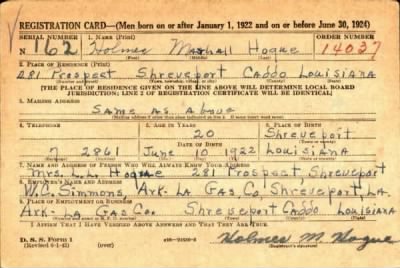 REGISTRATION CARD—(Men born on or after January 1, 1922 and on or before June 30, 1924)
SERIAL NUMBER 1. NAME (Print) ORDER NUMBER
N 162 Holmes Marshall Hogue 14037
(First) (Middle) (Last)
2. PLACE OF RESIDENCE (Print)
281 Prospect Shreveport Caddo Louisiana
[THE PLACE OF RESIDENCE GIVEN ON THE LINE ABOVE WILL DETERMINE LOCAL BOARD
JURISDICTION; LINE 2 OF REGISTRATION CERTIFICATE WILL BE IDENTICAL]
3. MAILING ADDRESS
Same as above
4. TELEPHONE 5. AGE IN YEARS 6. PLACE OF BIRTH
20 Shreveport
DATE OF BIRTH
7 2861 June 10 1922 Louisiana
7. NAME AND ADDRESS OF PERSON WHO WILL ALWAYS KNOW YOUR ADDRESS
Mrs. L. L. Hogue 281 Prospect, Shreveport
8. EMPLOYER'S NAME AND ADDRESS
W.C. Simmons, Ark-La Gas Co, Shreveport, La.
Ark-La Gas Co. Shreveport Caddo Louisiana
I AFFIRM THAT I HAVE VERIFIED ABOVE ANSWERS AND THAT THEY ARE TRUE.
D. S. S. Form 1
(Revised 6-9-41) (over)
Holmes M. Hogue
(Registrant's signature)